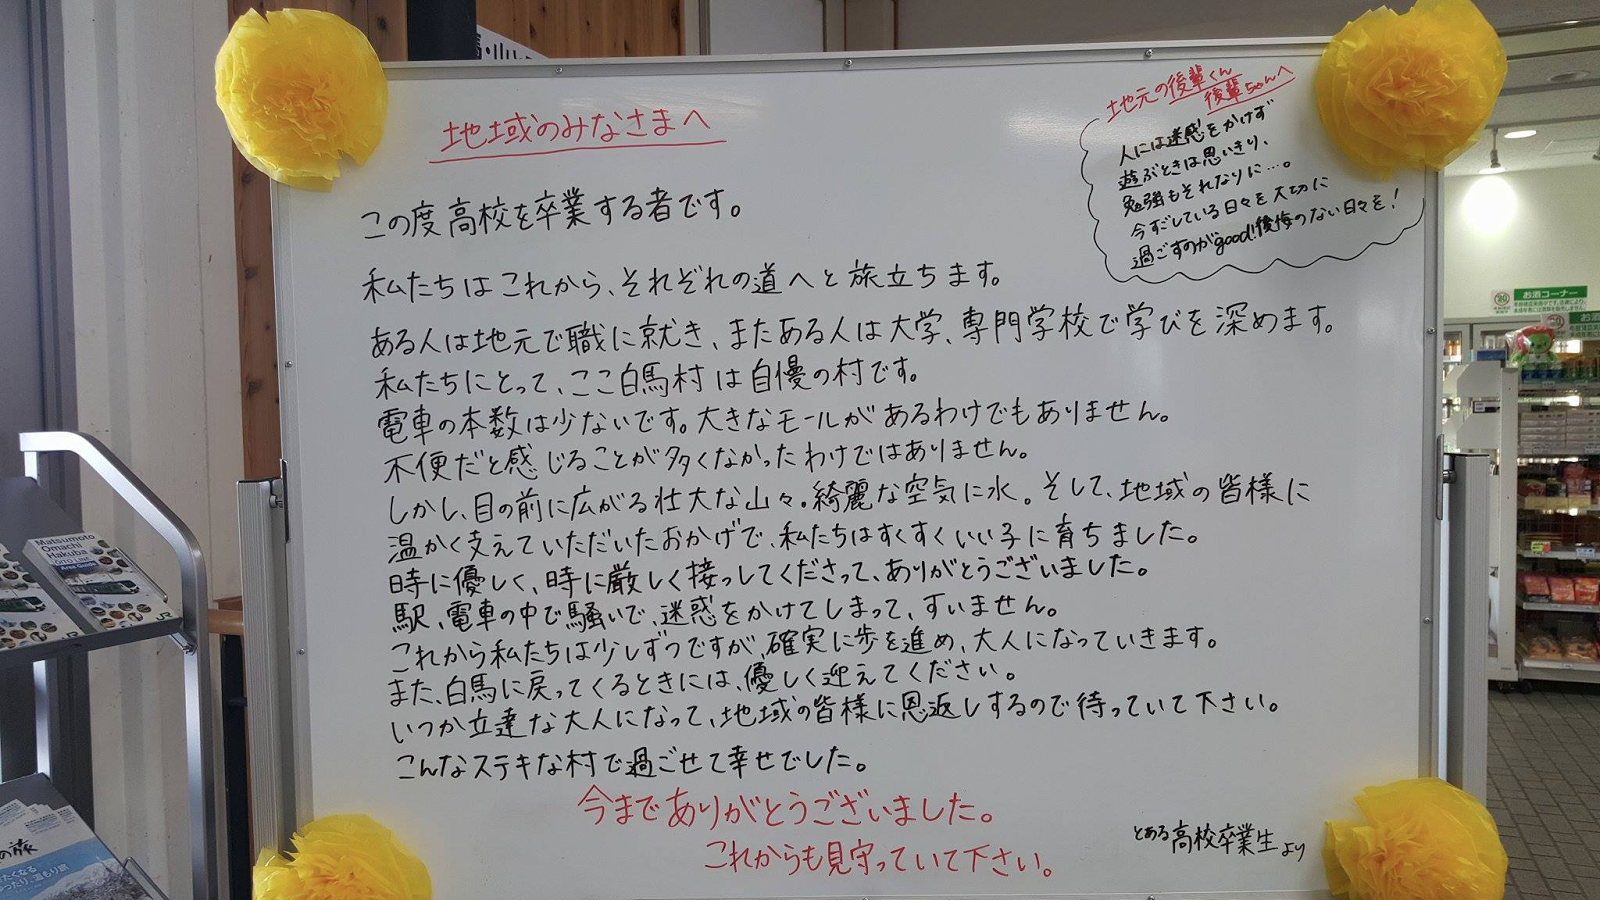 地域のみなさまへ
この度高校を卒業する者です。
私たちはこれから、それぞれの道へと旅立ちます。
ある人は地元で職に就き、またある人は大学、専門学校で学びを深めます。
私たちにとって、ここ白馬村は自慢の村です。
電車の本数は少ないです。大きなモールがあるわけでもありません。
不便だと感じることが多くなかったわけではありません。
しかし、目の前に広がる壮大な山々。綺麗な空気に水。そして、地域の皆様に
温かく支えていただいたおかげで、私たちはすくすくいい子に育ちました。
時に優しく、時に厳しく接っしてくださって、ありがとうございました。
駅、電車の中で騒いで、迷惑をかけてしまって、すいません。
これから私たちは少しずつですが、確実に歩を進め、大人になっていきます。
また、白馬に戻ってくるときには、優しく迎えてください。
いつか立達な大人になって、地域の皆様に恩返しするので待っていて下さい。
こんなステキな村で過ごせて幸せでした。
今までありがとうございました。
これからも見守っていて下さい。
とある高校卒業生より
地元の後輩くん
後輩ちゃんへ
人には迷惑をかけず
遊ぶときは思いきり、
勉強もそれなりに…。
今すごしている日々を大切に
過ごすのがgood!後悔のない日々を!
お酒コーナー
Matsumoto
Omachi
Hakuba
Area Guide
JR
の旅